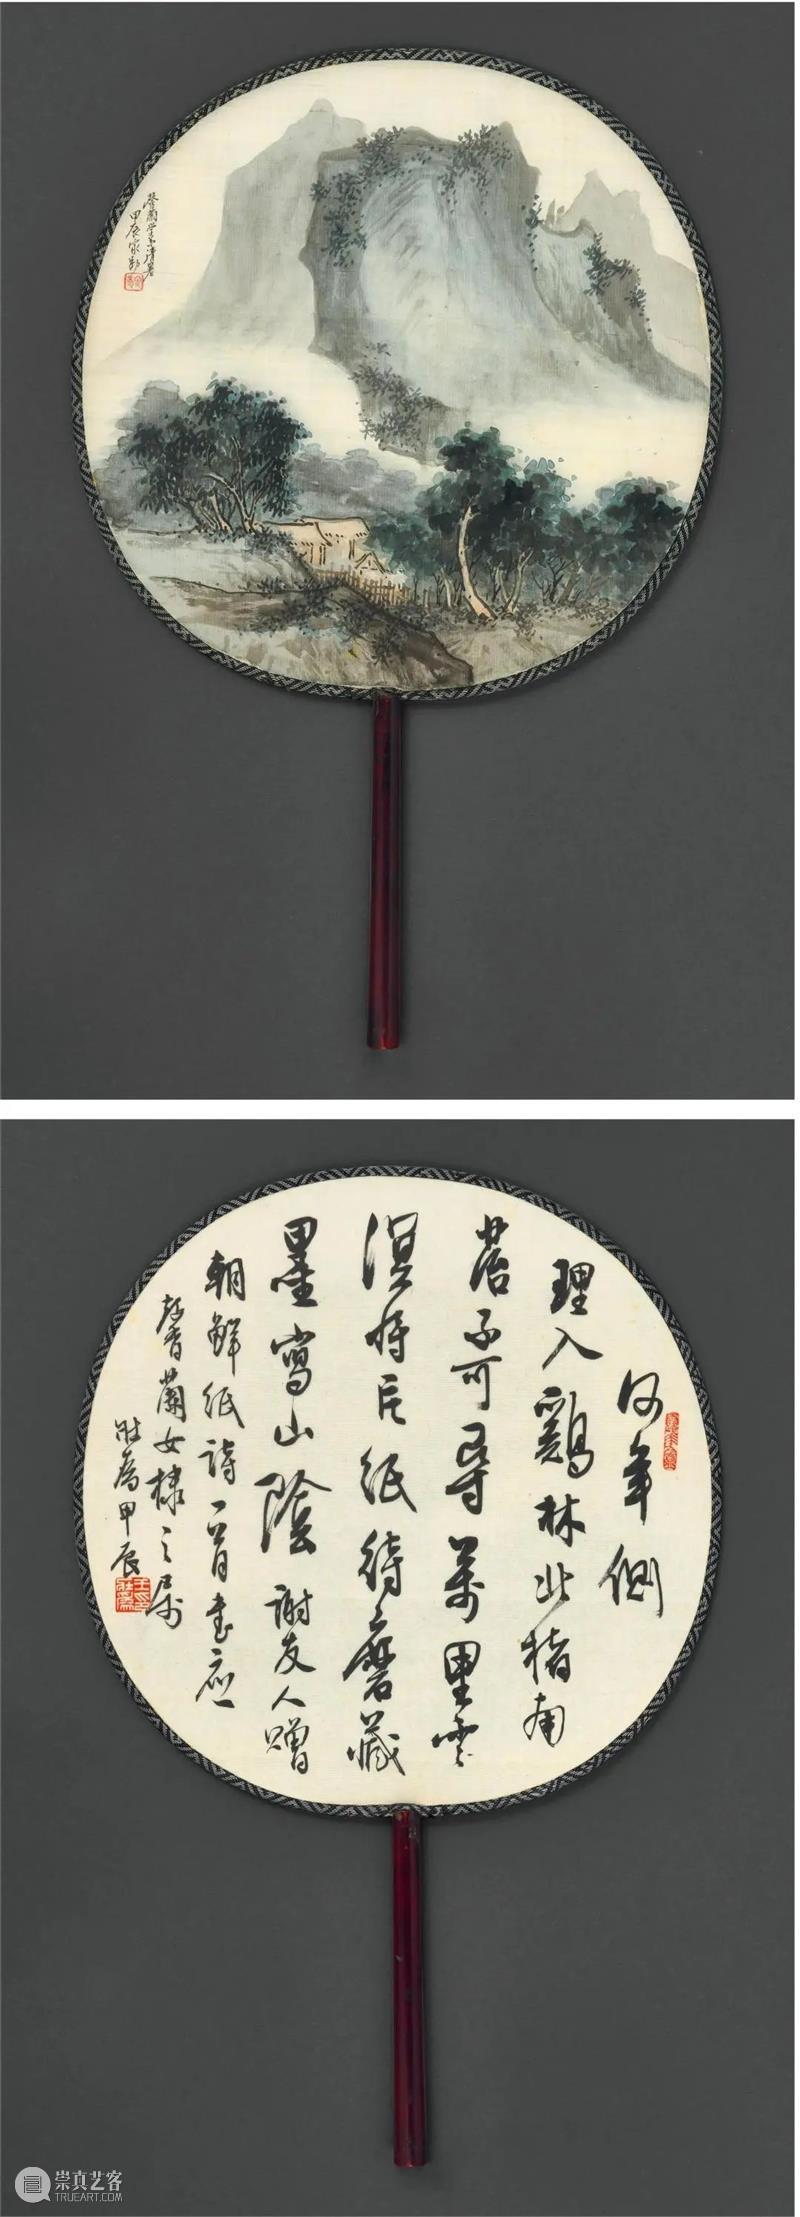 馨蘭學弟清暑
甲辰
何年側
理入鷄林北楮南
苔不可尋萬里雲
溟將片紙待磨藏
墨寫山陰 謝友人贈
朝鮮紙詩一首書應
馨蘭女棣之屬
壯為甲辰
崇真艺客
TRUEART.COM